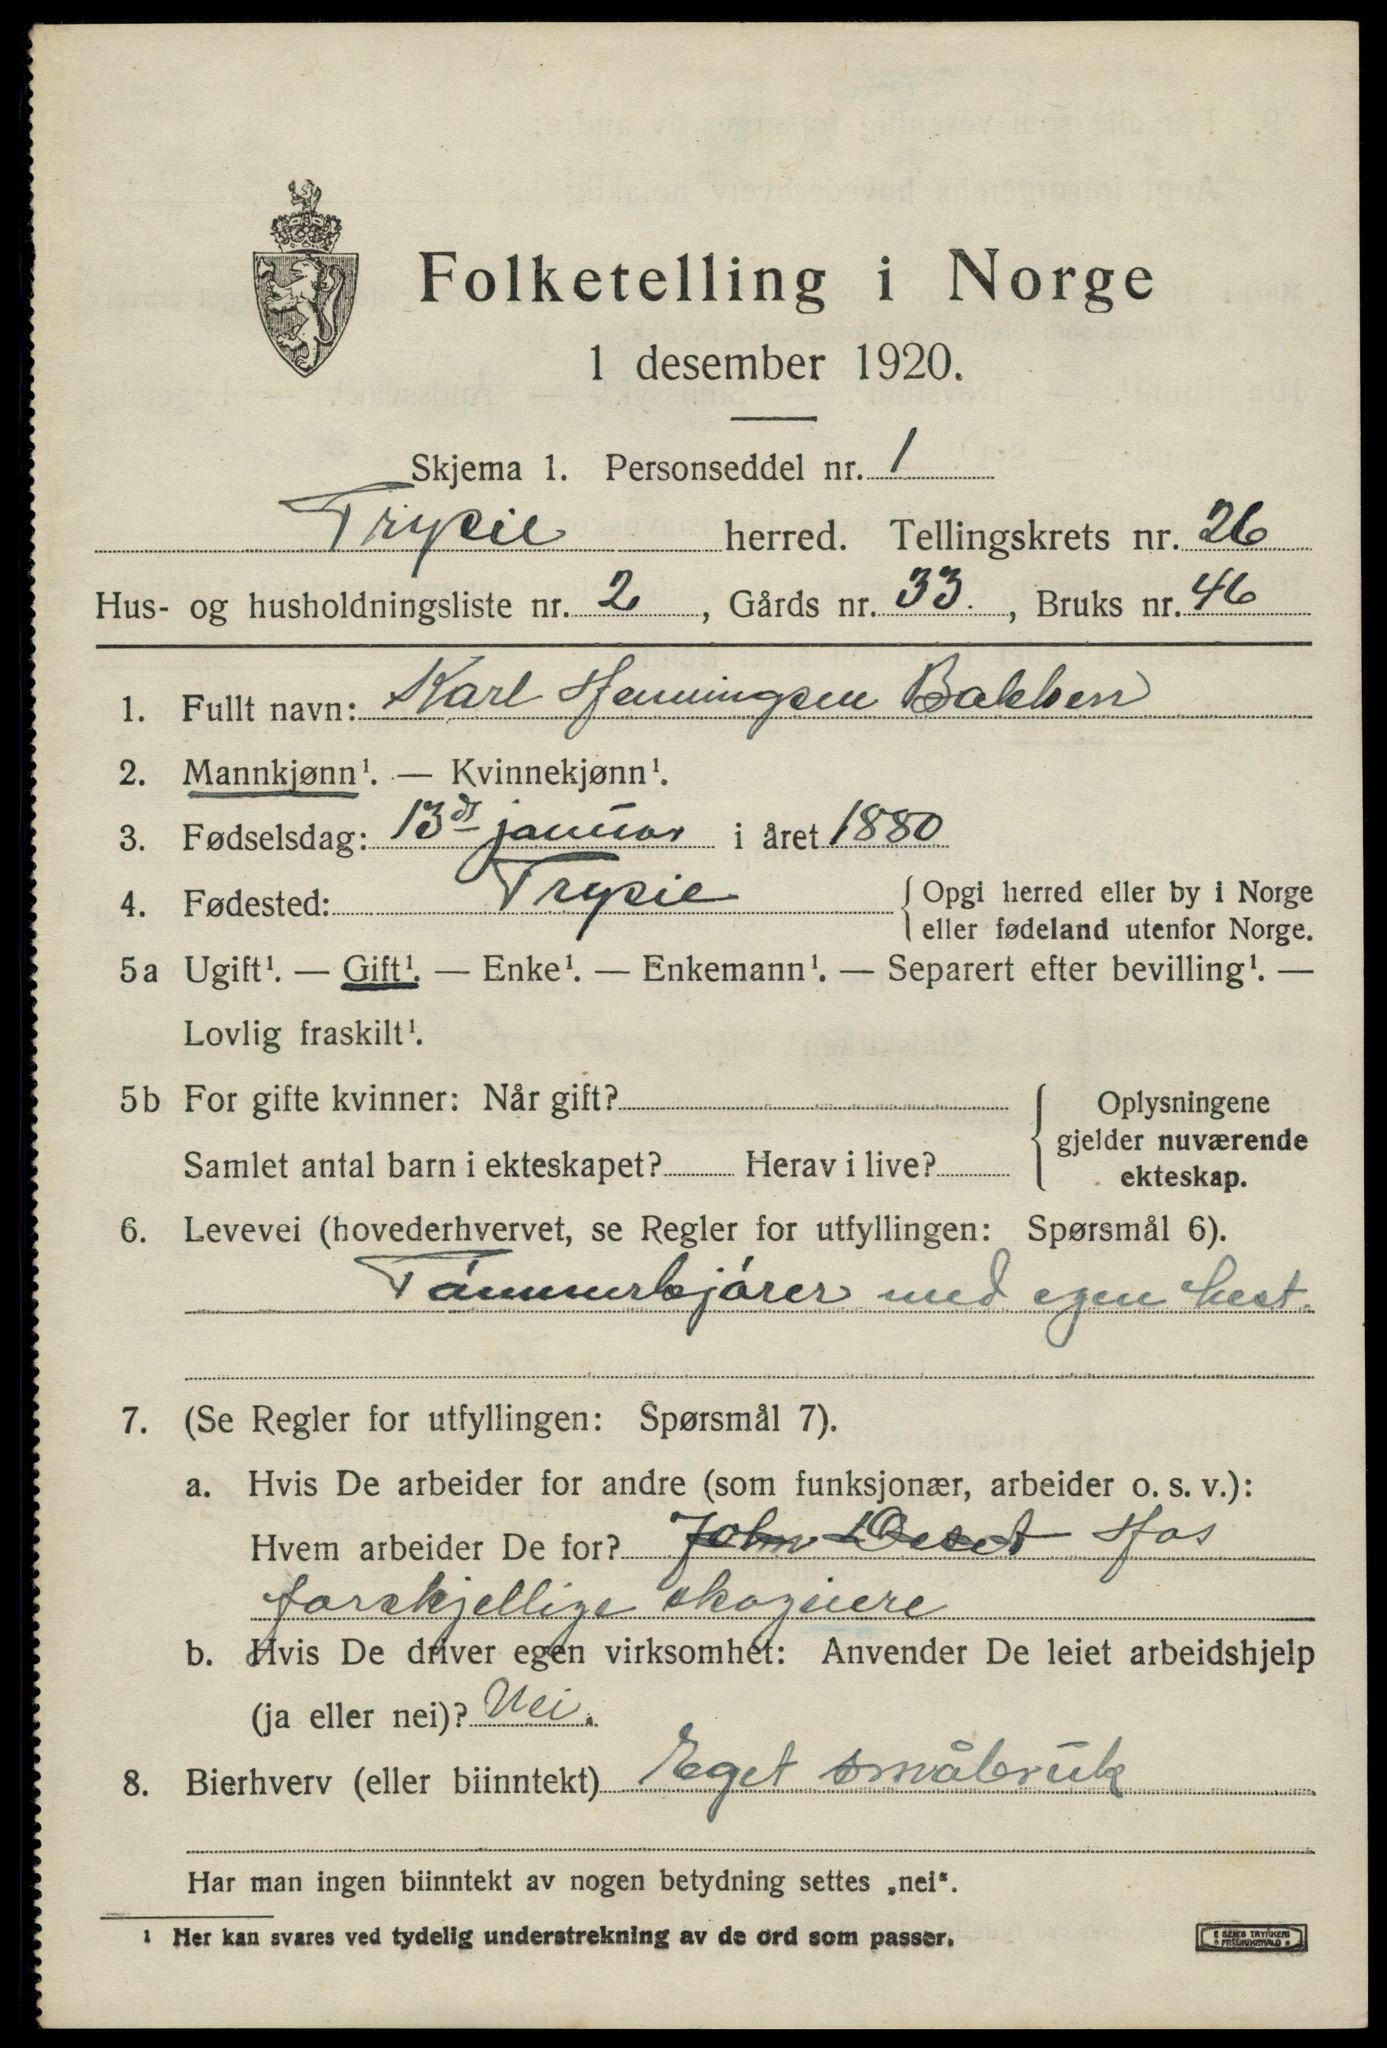 Folketelling i Norge
1 desember 1920.
Skjema 1. Personseddel nr. 1
Trysil herred. Tellingskrets nr. 26
Hus- og husholdningsliste nr. 2, Gårds nr. 33., Bruks nr. 46
1. Fullt navn: Karl Henningsen Bakken
2. Mannkjønn¹. — Kvinnekjønn¹.
3. Fødselsdag: 13de januar i året 1880
4. Fødested: Trysil { Opgi herred eller by i Norge
eller fødeland utenfor Norge.
5a Ugift¹. — Gift¹. — Enke¹. — Enkemann¹. — Separert efter bevilling¹. —
Lovlig fraskilt¹.
5b For gifte kvinner: Når gift? { Oplysningene
gjelder nuværende
Samlet antal barn i ekteskapet? Herav i live?
ekteskap.
6. Levevei (hovederhvervet, se Regler for utfyllingen: Spørsmål 6).
Tømmerkjører med egen hest.
7. (Se Regler for utfyllingen: Spørsmål 7).
a. Hvis De arbeider for andre (som funksjonær, arbeider o. s. v.):
Hvem arbeider De for? John Deset Hos
forskjellige skogeiere
b. Hvis De driver egen virksomhet: Anvender De leiet arbeidshjelp
(ja eller nei)? Nei.
8. Bierhverv (eller biinntekt) Eget småbruk
Har man ingen biinntekt av nogen betydning settes „nei“.
¹ Her kan svares ved tydelig understrekning av de ord som passer.